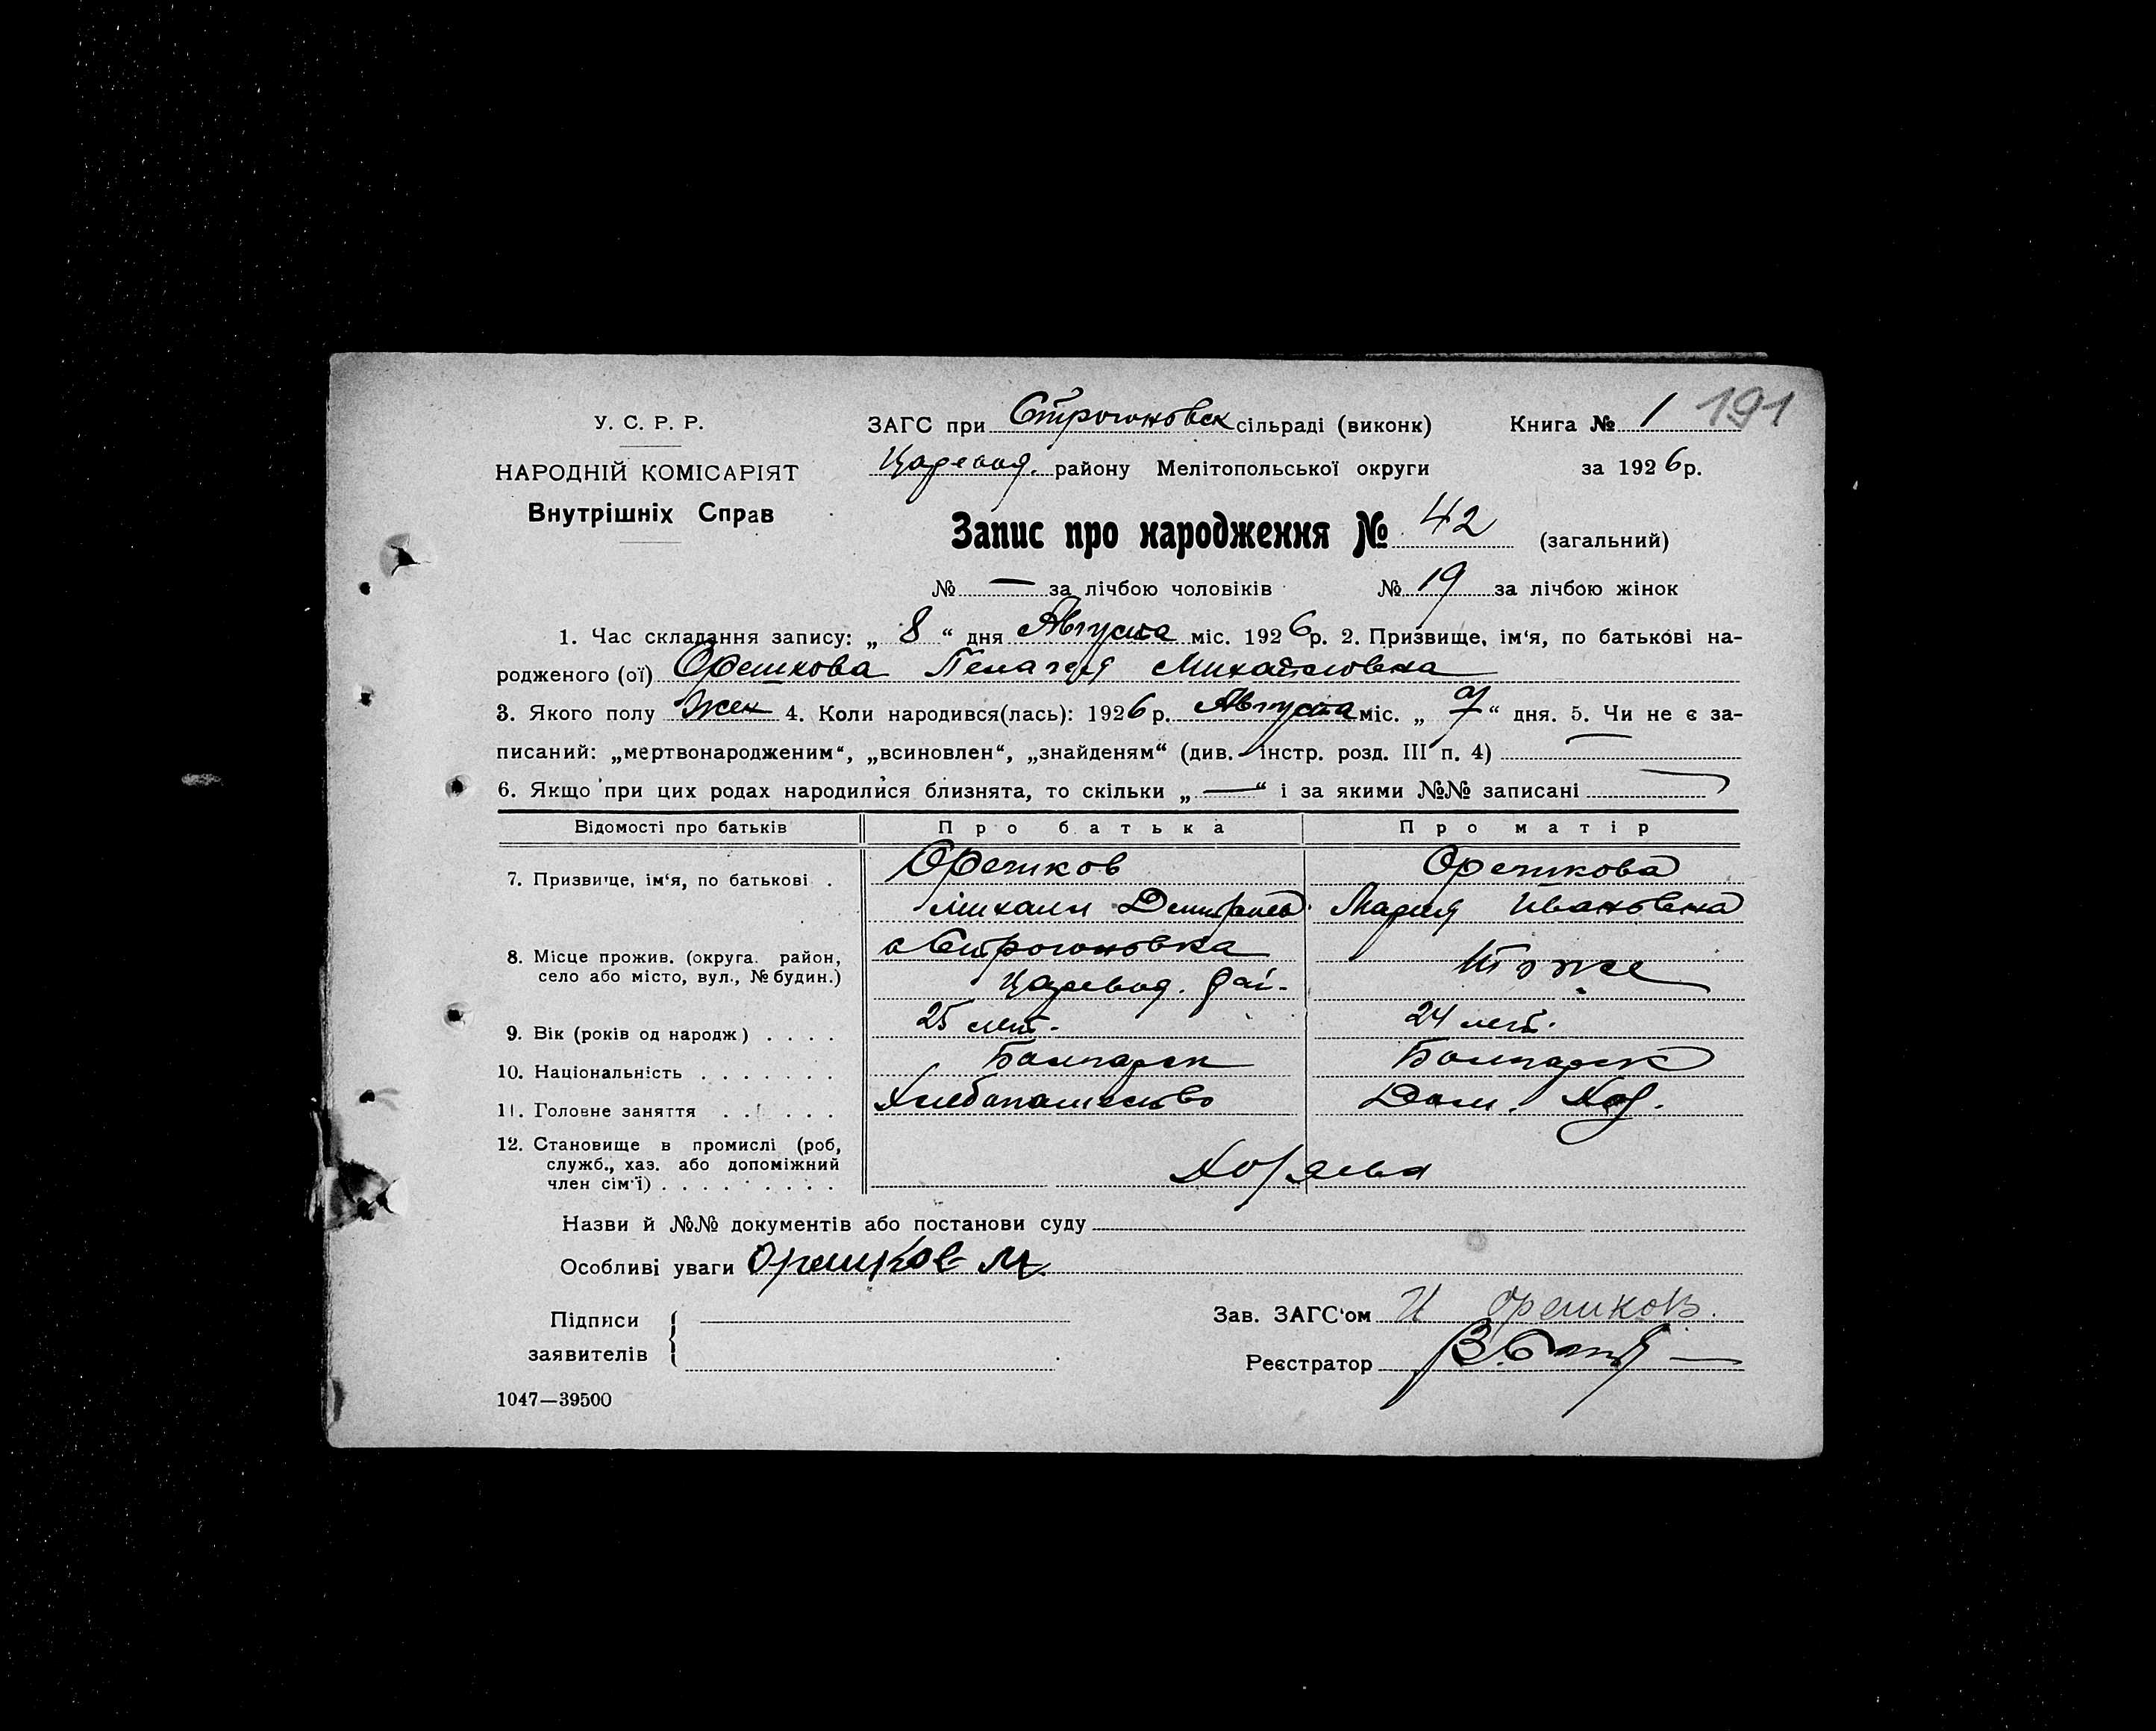 191
У. С. Р. Р.
НАРОДНІЙ КОМІСАРІЯТ
Внутрішніх Справ
ЗАГС при Строгоновск сільраді (виконк) Книга № 1
Царевод. району Мелітопольської округи за 1926 р.
Запис про народження № 42 (загальний)
№ — за лічбою чоловіків № 19 за лічбою жінок
1. Час складання запису: „ 8 “ дня Августа міс. 1926 р. 2. Призвище, ім‘я, по батькові на-
родженого (ої) Орешкова Пелагея Михайловна
3. Якого полу Жен 4. Коли народився(лась): 1926 р. Августа міс. „ 7 “ дня. 5. Чи не є за-
писаний: „мертвонародженим“, „всиновлен“, „знайденям“ (див. інстр. розд. III п. 4) —
6. Якщо при цих родах народилися близнята, то скільки „ — “ і за якими №№ записані —
Відомості про батьків Про батька Про матір
7. Призвище, ім‘я, по батькові . Орешков Орешкова
Михаил Мария Ивановна
8. Місце прожив. (округа. район, с Строгоновка
село або місто, вул., № будин.) Царевод. рай. Тоже
9. Вік (років од народж) . . . . 25 лет. 24 лет.
10. Національність . . . . . . . Болгарск Болгарск
11. Головне заняття . . . . . Хлебопашество Дом. Хоз.
12. Становище в промислі (роб,
служб., хаз. або допоміжний
член сім‘ї) . . . . . . . . . Хозяева
Назви й №№ документів або постанови суду
Особливі уваги Орешков М.
Підписи
заявителів
Зав. ЗАГС‘ом И Орешков.
Реєстратор
1047—39500